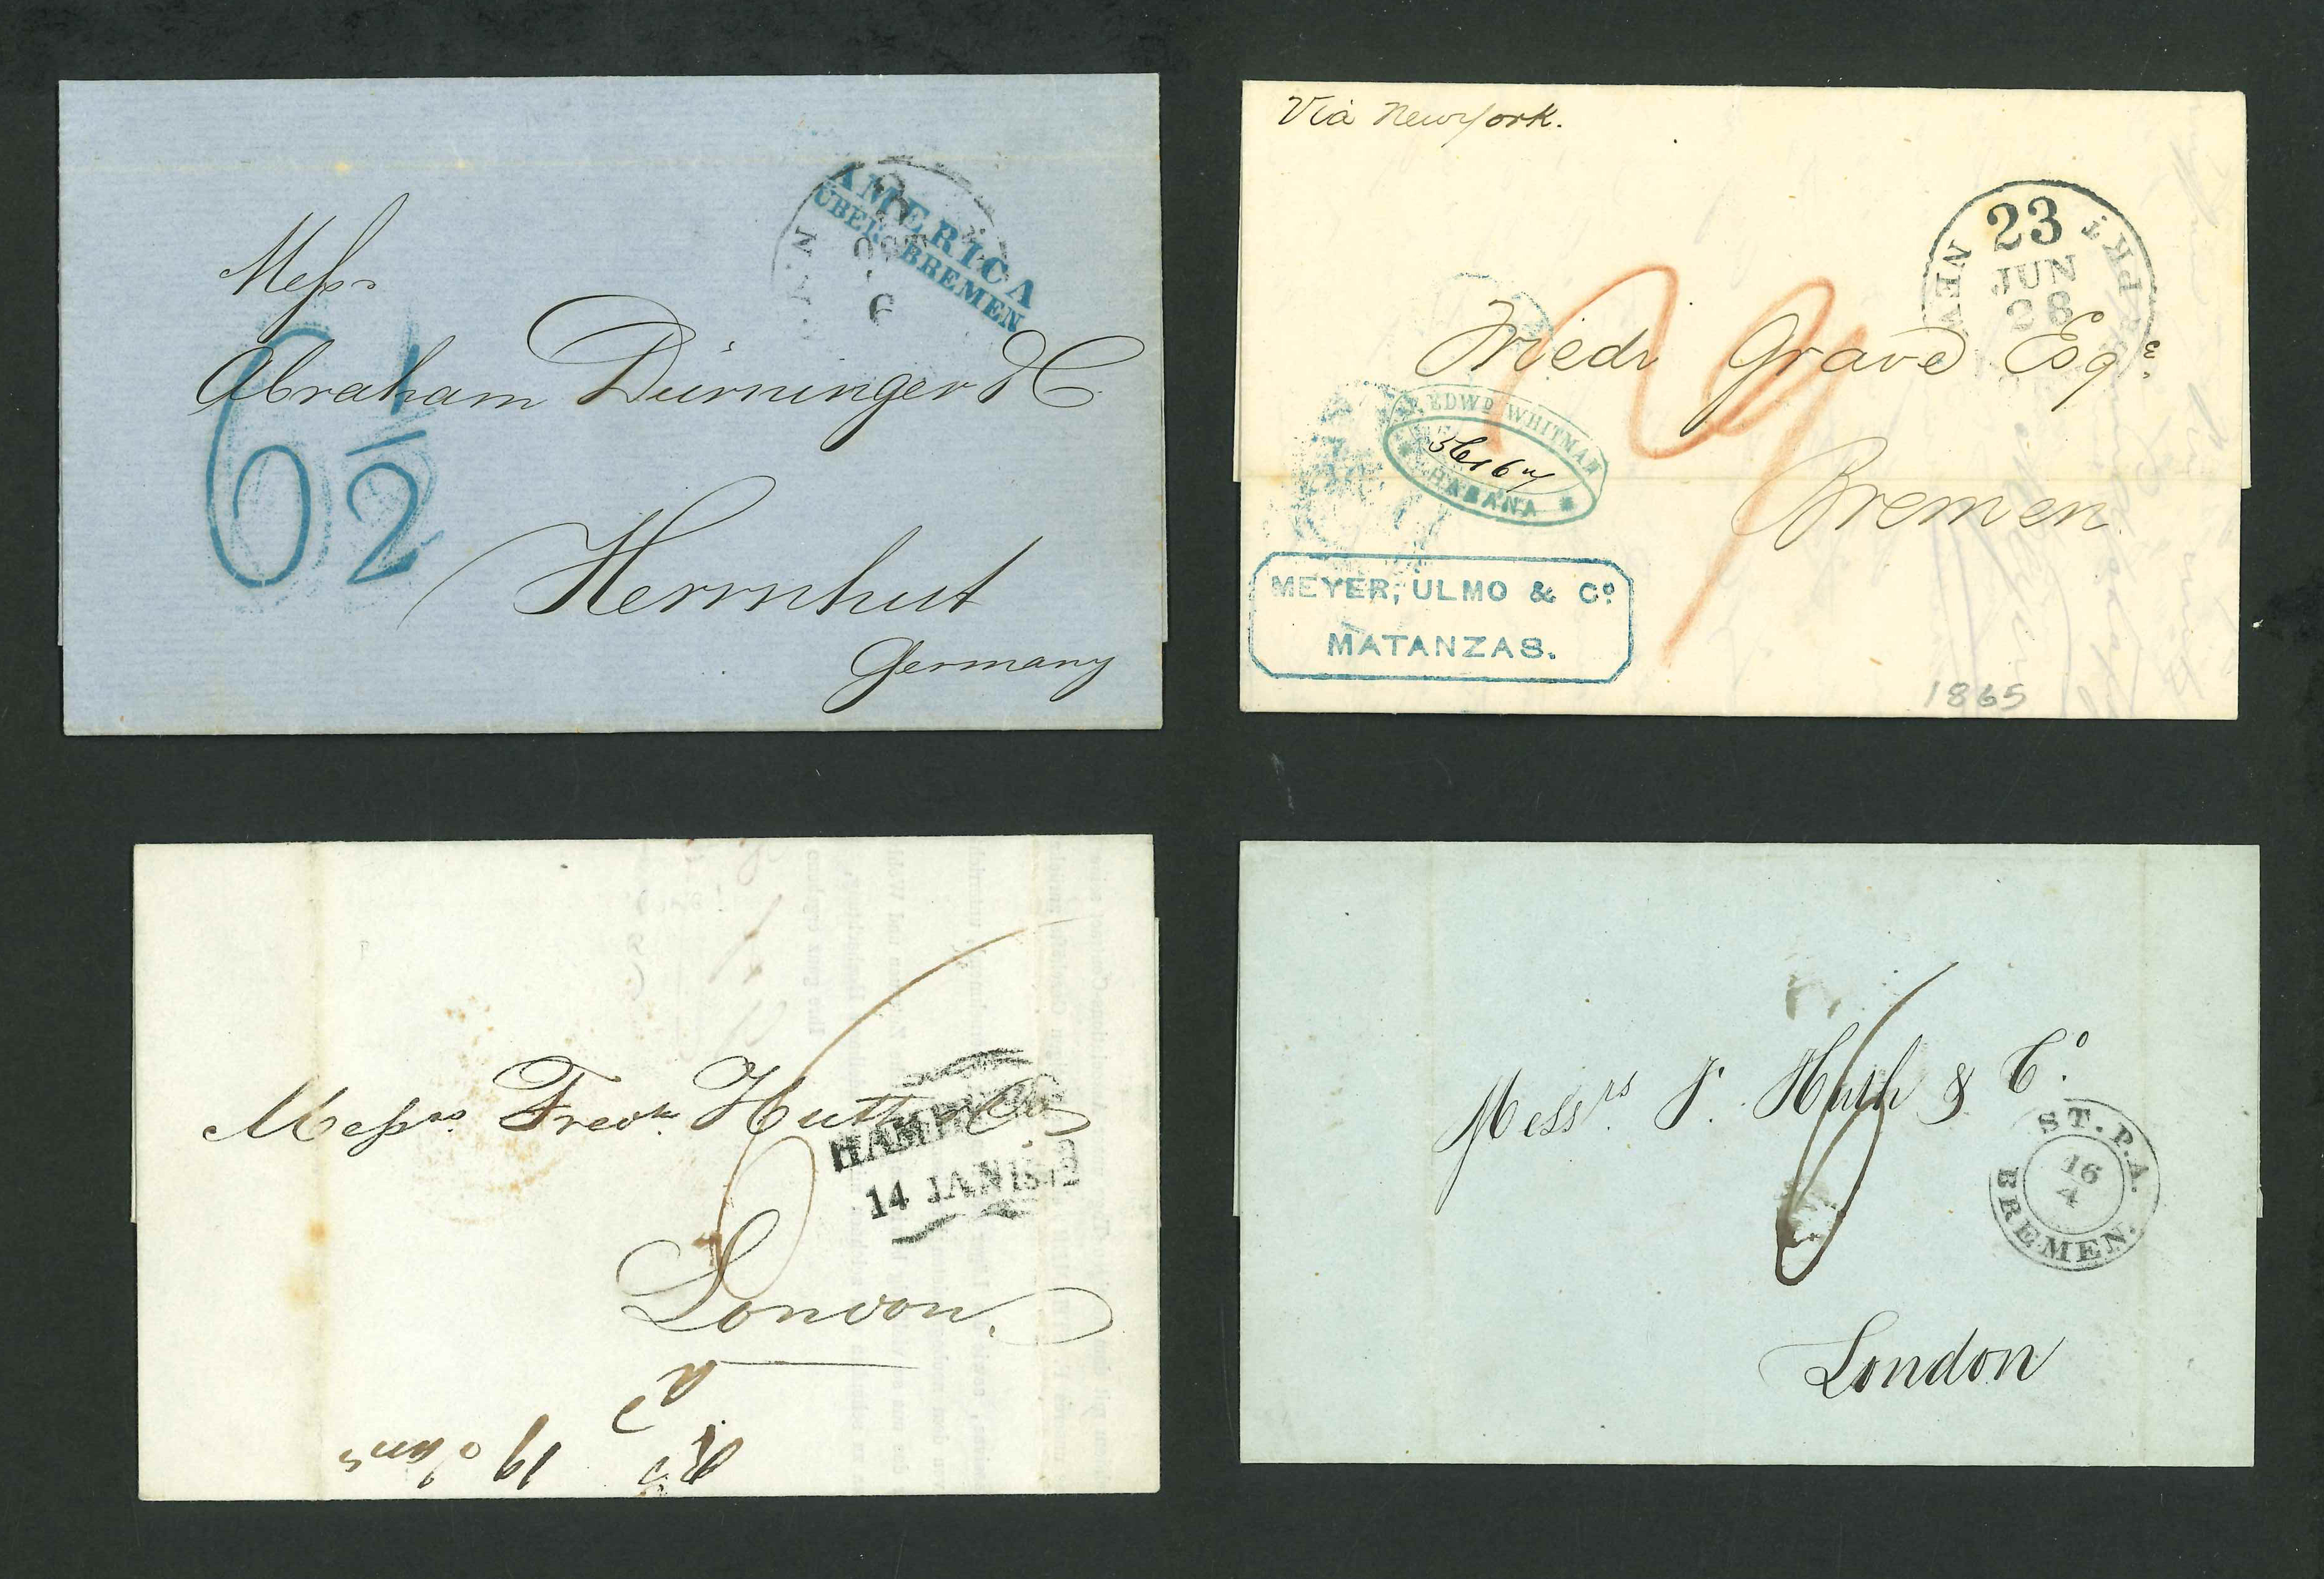 AMERICA
ÜBER BREMEN
OCT
6
Messrs
Abraham Dürninger & C
6 1/2
Herrnhut
Germany
Via New York.
NEW PKT
23
JUN
28
Friedr Grave Esqre.
EDWD WHITMAN
HABANA
Bremen
MEYER, ULMO & Co
MATANZAS.
1865
Messrs. Fredk. Huth & Co
HAMBURG
14 JAN 1842
6
London.
19 Jany
Messrs. F. Huth & Co.
6
ST. P. A.
16
4
BREMEN.
London